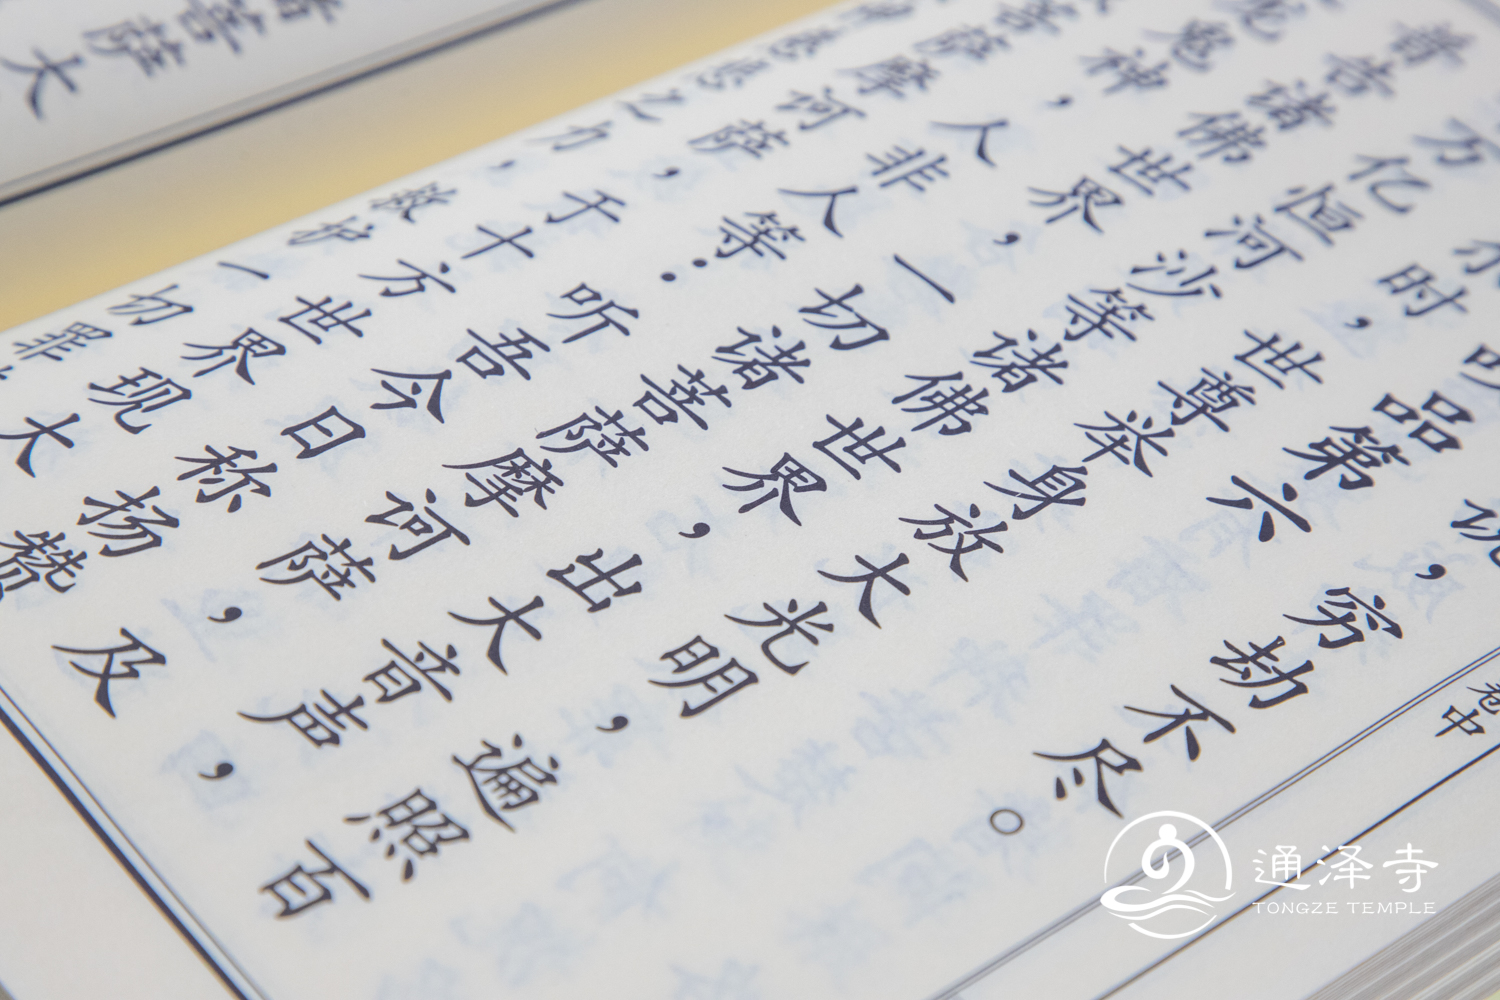 说，穷劫不尽。
品第六
尔时，世尊举身放大光明，遍照百
万亿恒河沙等诸佛世界，出大音声，
普告诸佛世界，一切诸菩萨摩诃萨，及
龙鬼神，人非人等：听吾今日称扬赞
菩萨摩诃萨，于十方世界现大
慈悲之力，救护一切罪
菩萨大
卷中
通泽寺
TONGZE TEMPLE